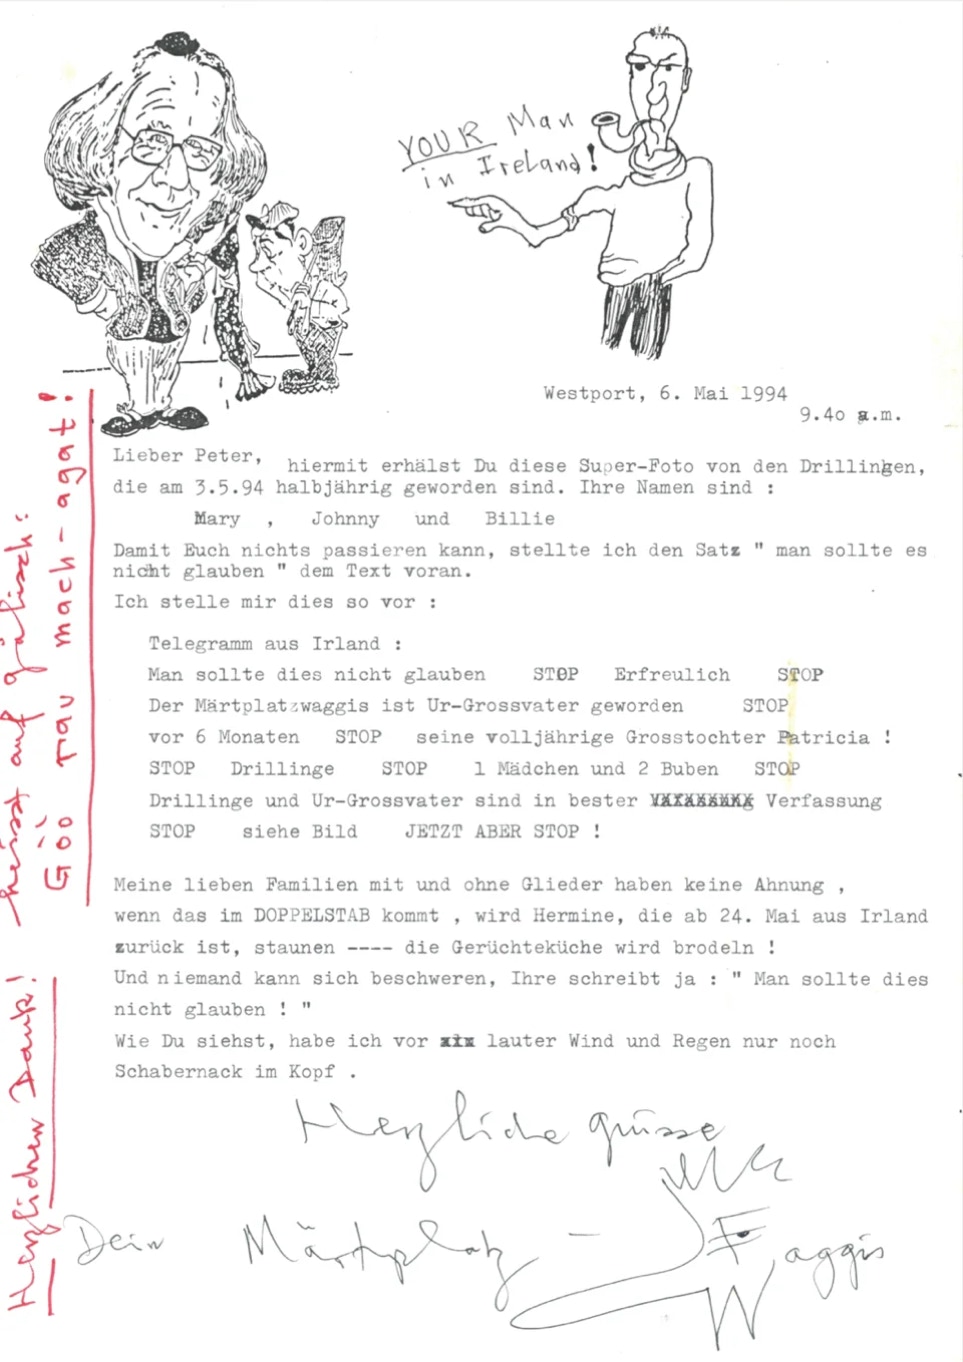 YOUR Man
in Ireland!
Westport, 6. Mai 1994
9.4o a.m.
Lieber Peter,
hiermit erhälst Du diese Super-Foto von den Drillingen,
die am 3.5.94 halbjährig geworden sind. Ihre Namen sind :
Mary , Johnny und Billie
Damit Euch nichts passieren kann, stellte ich den Satz " man sollte es
nicht glauben " dem Text voran.
Ich stelle mir dies so vor :
Telegramm aus Irland :
Man sollte dies nicht glauben STOP Erfreulich STOP
Der Märtplatzwaggis ist Ur-Grossvater geworden STOP
vor 6 Monaten STOP seine volljährige Grosstochter Patricia !
STOP Drillinge STOP 1 Mädchen und 2 Buben STOP
Drillinge und Ur-Grossvater sind in bester Verfassung
STOP siehe Bild JETZT ABER STOP !
Meine lieben Familien mit und ohne Glieder haben keine Ahnung ,
wenn das im DOPPELSTAB kommt , wird Hermine, die ab 24. Mai aus Irland
zurück ist, staunen ---- die Gerüchteküche wird brodeln !
Und niemand kann sich beschweren, Ihre schreibt ja : " Man sollte dies
nicht glauben ! "
Wie Du siehst, habe ich vor lauter Wind und Regen nur noch
Schabernack im Kopf .
Herzliche grüsse
Dein Märtplatz - Waggis
Herzlichen Dank! heisst auf gälisch:
Göö rau mach-agat!